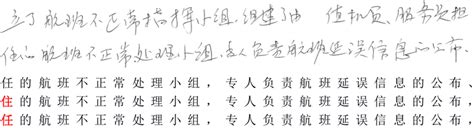 立了航班不正常指挥小组,组建了由 值机员、服务员担
任的航班不正常处理小组,专人负责航班延误信息的公布、
任的航班不正常处理小组，专人负责航班延误信息的公布、
住的航班不正常处理小组，专人负责航班延误信息的公布、
任的航班不正常处理小组，专人负责航班延误信息的公布、